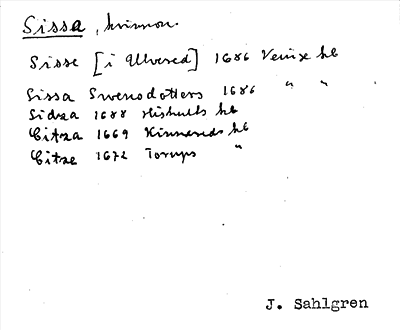 Sissa, kvinnon.
Sisse [i Ulvered] 1686 Veinge kb
Sissa Swensdotters 1686 " "
Sidza 1688 Hishults kb
Citza 1669 Kinnareds kb
Citze 1672 Torups "
J. Sahlgren